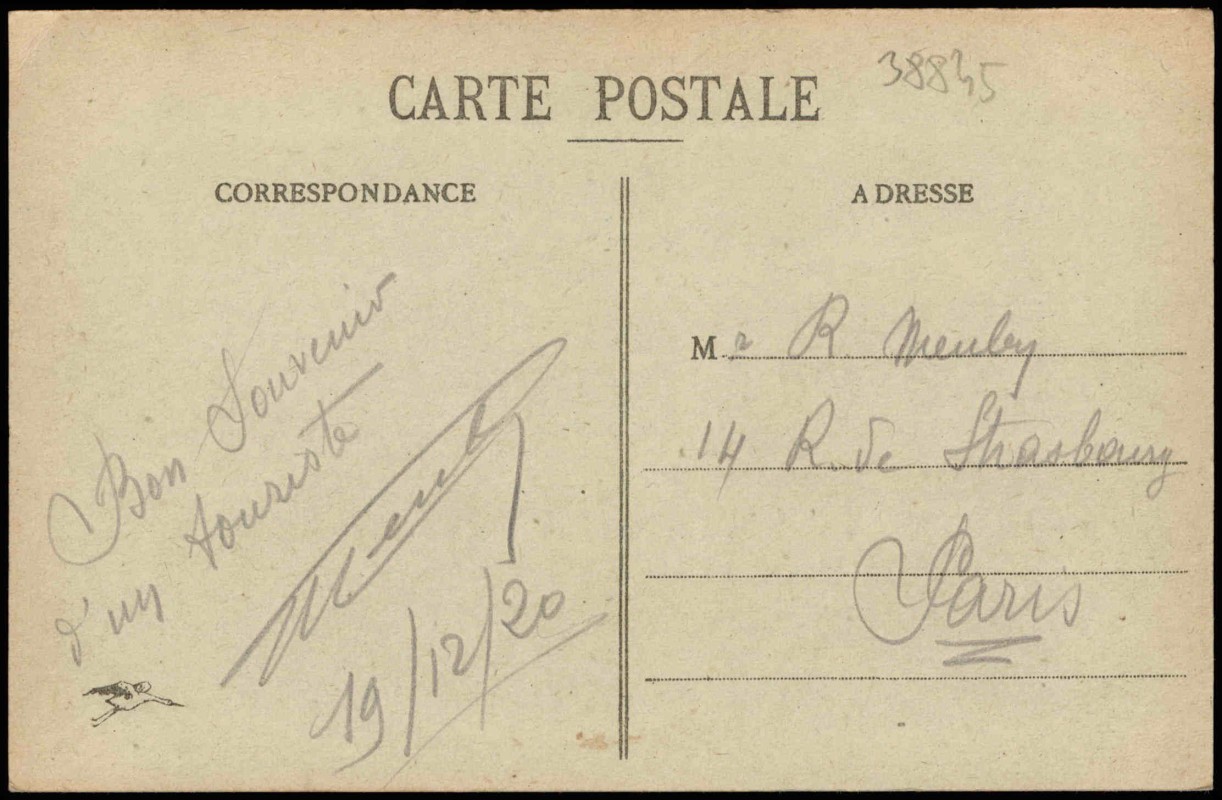 CARTE POSTALE
38845
CORRESPONDANCE
ADRESSE
Bon Souvenir
d'un touriste
19/12/20
Mr R. Meuley
14 R. de Strasbourg
Paris